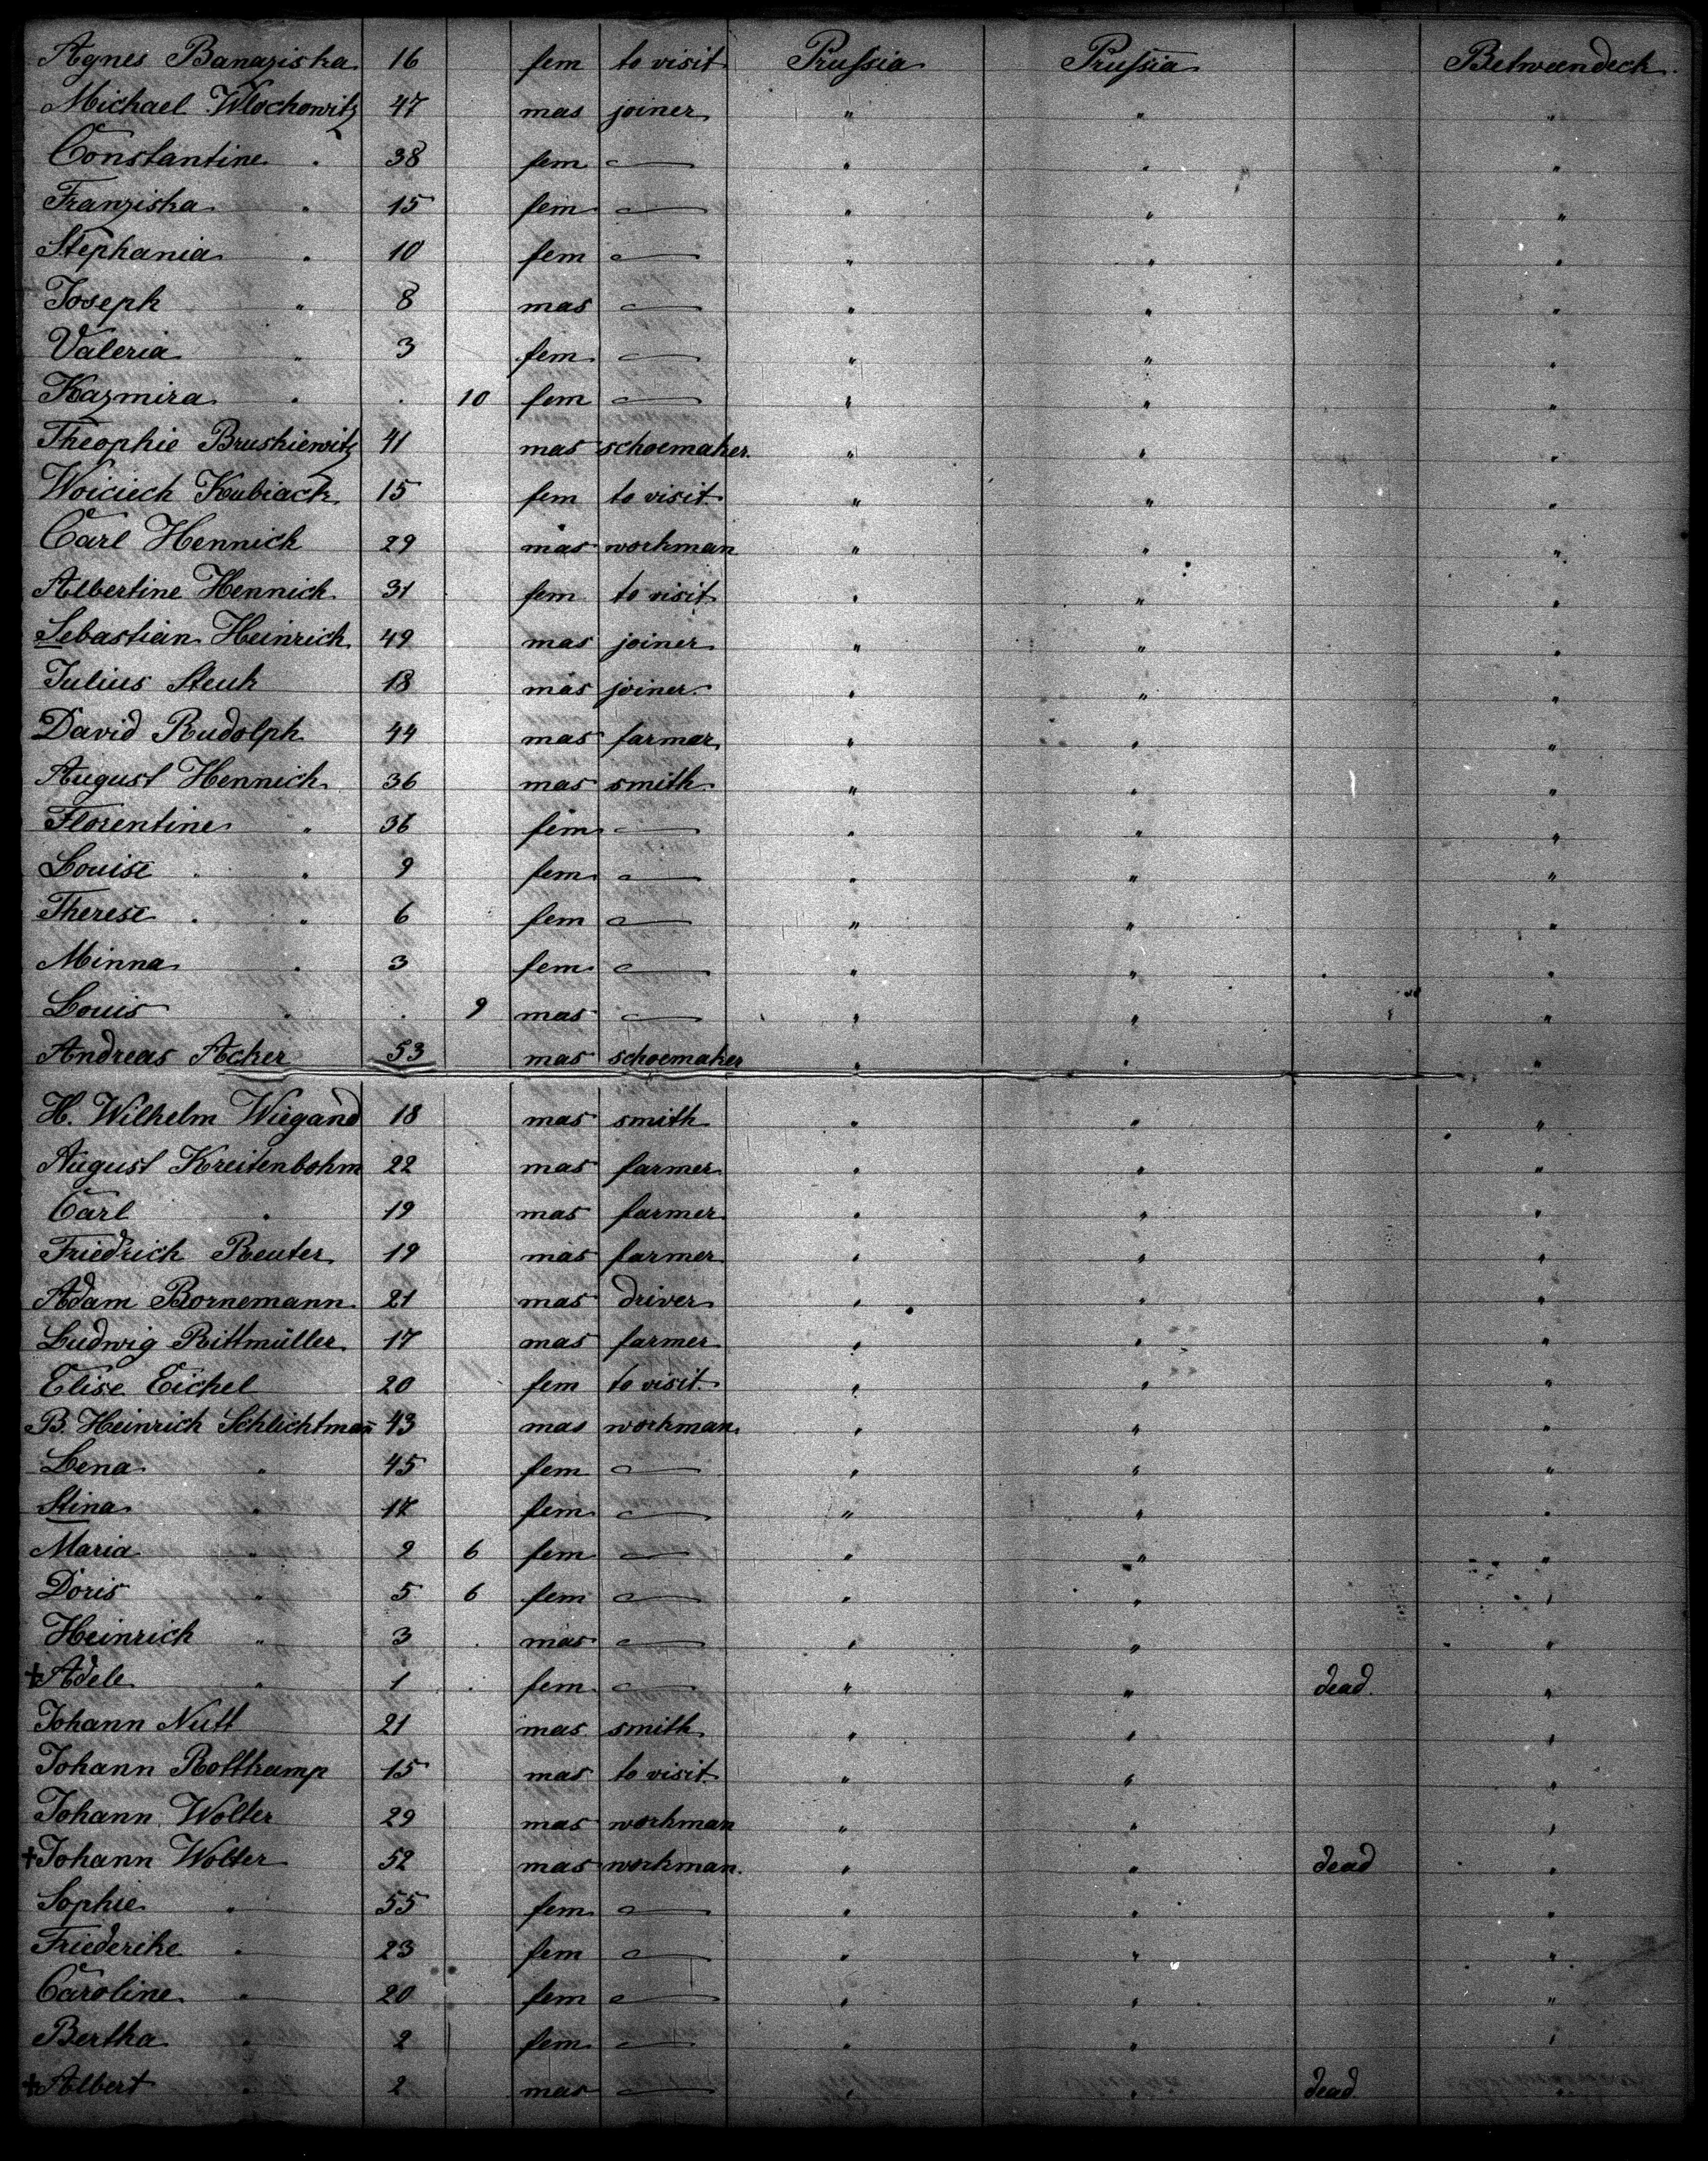 Agnes Banaziska 16 fem to visit Prussia Prussia Betweendeck
Michael Wlochowitz 47 mas joiner " " "
Constantine " 38 fem — " " "
Franziska " 15 fem — " " "
Stephania " 10 fem — " " "
Joseph " 8 mas — " " "
Valeria " 3 fem — " " "
Kazmira " . 10 fem — " " "
Theophie Bruskiewitz 41 mas schoemaker " " "
Woiciech Kubiack 15 fem to visit " " "
Carl Hennick 29 mas workman " " "
Albertine Hennich 31 fem to visit " " "
Sebastian Heinrich 49 mas joiner " " "
Julius Steuk 18 mas joiner " " "
David Rudolph 44 mas farmer " " "
August Hennich 36 mas smith " " "
Florentine " 36 fem — " " "
Louise " 9 fem — " " "
Therese " 6 fem — " " "
Minna " 3 fem — " " "
Louis " . 9 mas — " " "
Andreas Acker 53 mas schoemaker " " "
H. Wilhelm Wiegand 18 mas smith " " "
August Kreitenbohm 22 mas farmer " " "
Carl " 19 mas farmer " " "
Friedrich Reuter 19 mas farmer " " "
Adam Bornemann 21 mas driver " " "
Ludwig Rittmüller 17 mas farmer " " "
Elise Eichel 20 fem to visit " " "
B. Heinrich Schlichtman̄ 43 mas workman " " "
Lena " 45 fem — " " "
Stina " 17 fem — " " "
Maria " 9 6 fem — " " "
Doris " 5 6 fem — " " "
Heinrich " 3 . mas — " " "
+Adele " 1 . fem — " " dead "
Johann Nutt 21 mas smith " " "
Johann Rottkamp 15 mas to visit " " "
Johann Wolter 29 mas workman " " "
+Johann Wolter 52 mas workman " " dead "
Sophie " 55 fem — " " "
Friederike " 23 fem — " " "
Caroline " 20 fem — " " "
Bertha " 2 fem — " " "
+Albert " 2 mas — " " dead "